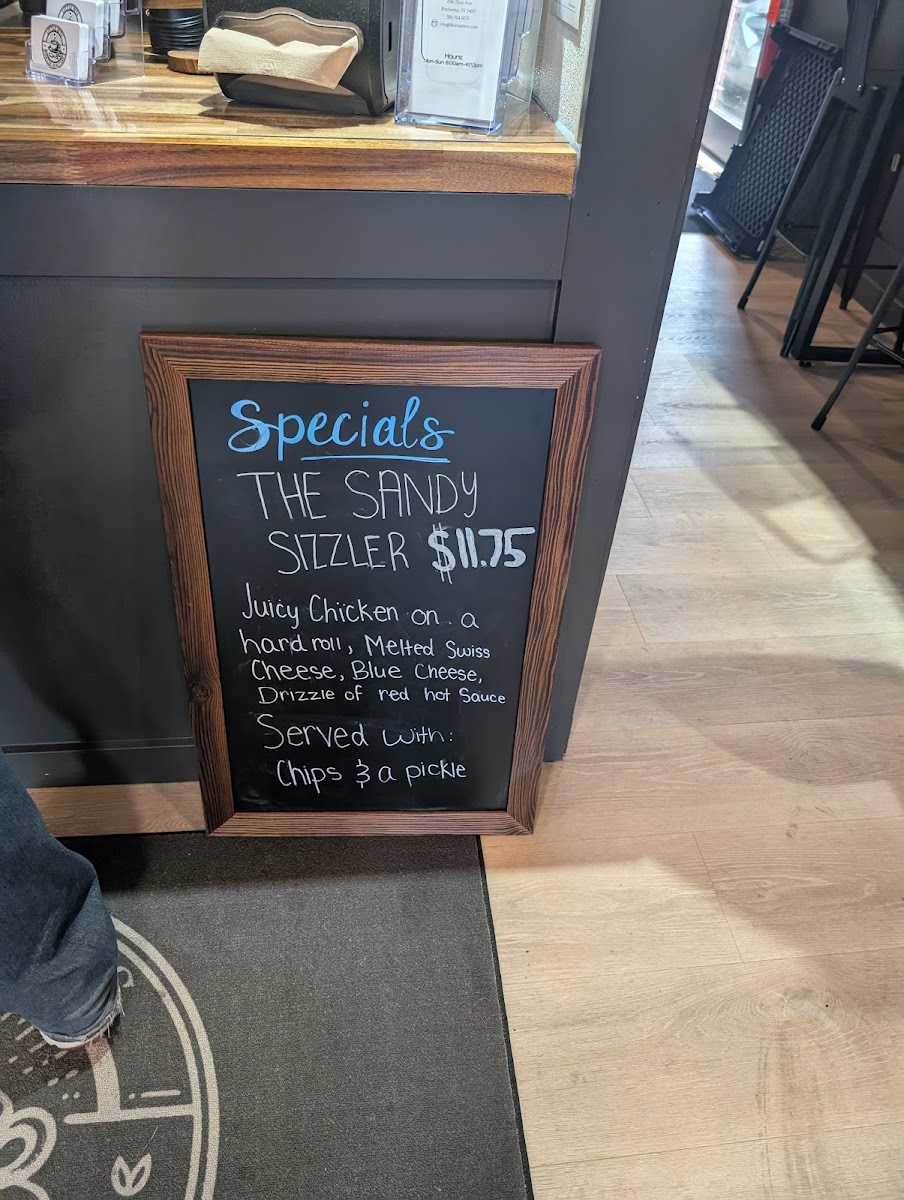 Hours:
Mon-Sun 8:00am-4:00pm
Specials
THE SANDY
SIZZLER $11.75
Juicy Chicken on a
hard roll, Melted Swiss
Cheese, Blue Cheese,
Drizzle of red hot Sauce
Served with:
Chips & a pickle